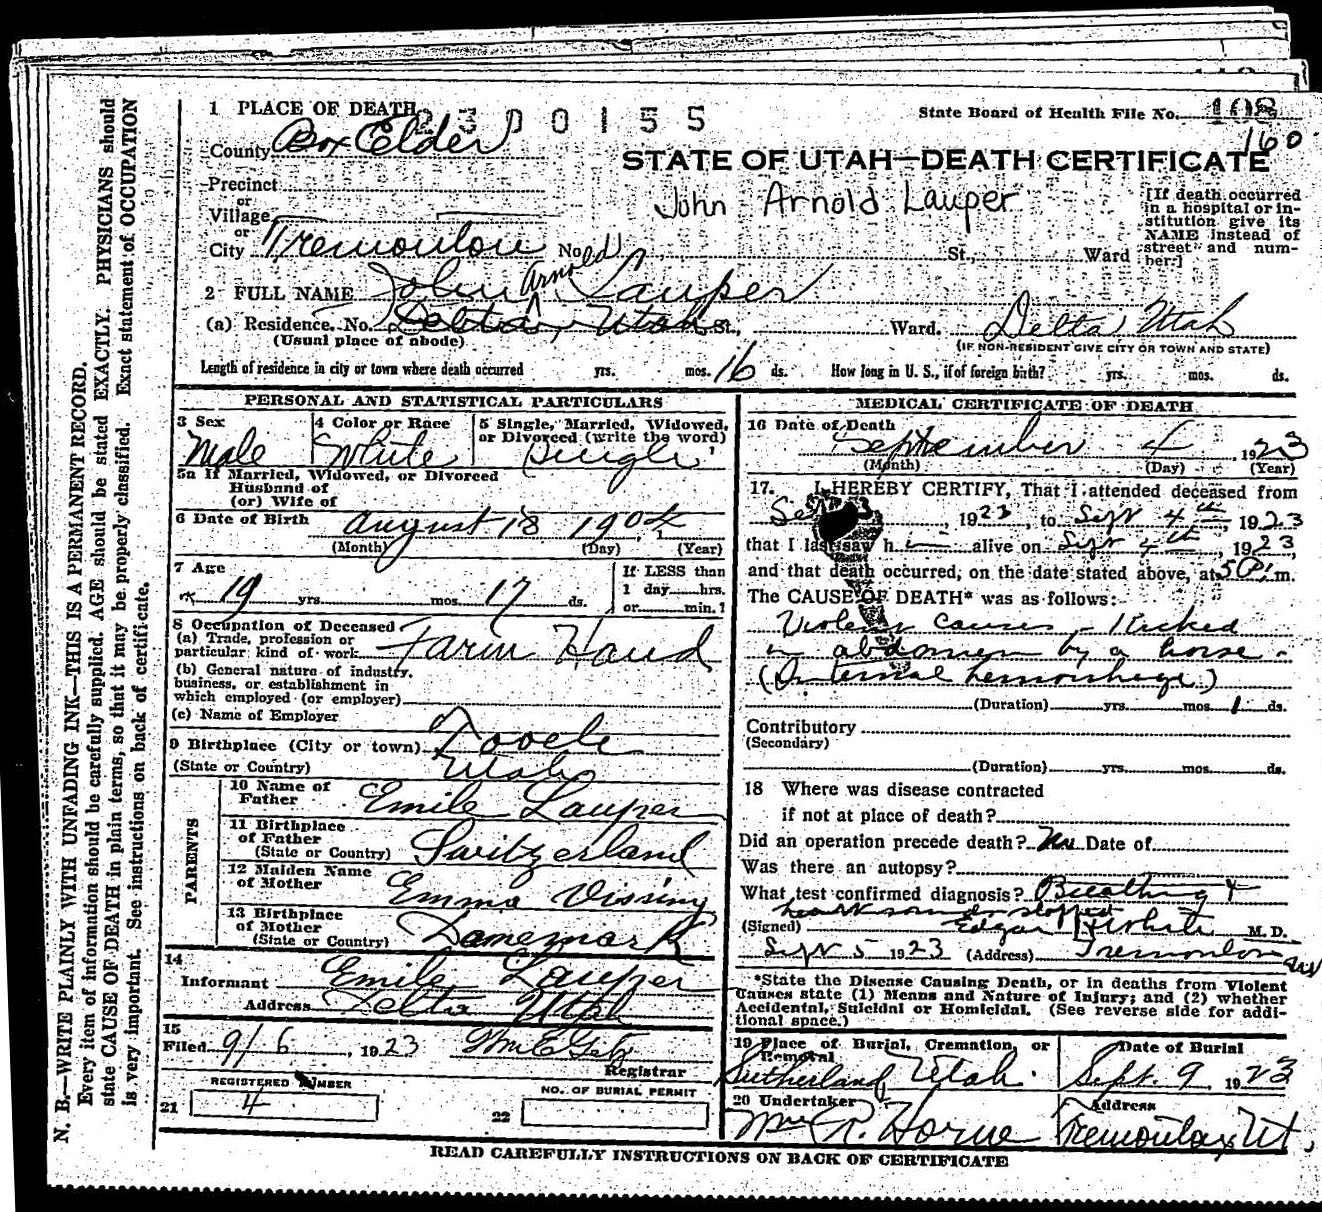 1 PLACE OF DEATH 2300155
State Board of Health File No. 108
160
County Box Elder
STATE OF UTAH—DEATH CERTIFICATE
Precinct
or
Village
or
City Tremonton No. St., Ward
John Arnold Lauper
[If death occurred
in a hospital or in-
stitution give its
NAME instead of
street and num-
ber.]
2 FULL NAME John Arnold Lauper
(a) Residence. No. Delta, Utah St., Ward. Delta Utah
(Usual place of abode) (IF NON-RESIDENT GIVE CITY OR TOWN AND STATE)
Length of residence in city or town where death occurred yrs. mos. 16 ds. How long in U. S., if of foreign birth? yrs. mos. ds.
PERSONAL AND STATISTICAL PARTICULARS
3 Sex 4 Color or Race 5 Single, Married, Widowed,
or Divorced (write the word)
Male White Single
5a If Married, Widowed, or Divorced
Husband of
(or) Wife of
6 Date of Birth August 18 1904
(Month) (Day) (Year)
7 Age
19 yrs. mos. 17 ds.
If LESS than
1 day hrs.
or min.?
8 Occupation of Deceased
(a) Trade, profession or
particular kind of work Farm Hand
(b) General nature of industry,
business, or establishment in
which employed (or employer)
(c) Name of Employer
9 Birthplace (City or town) Tooele
(State or Country) Utah
PARENTS
10 Name of
Father Emile Lauper
11 Birthplace
of Father
(State or Country) Switzerland
12 Maiden Name
of Mother Emma Vissing
13 Birthplace
of Mother
(State or Country) Danemark
14
Informant Emile Lauper
Address Delta Utah
15
Filed 9/6, 1923 Wm E Getz
Registrar
REGISTERED NUMBER
21 4
NO. OF BURIAL PERMIT
22
MEDICAL CERTIFICATE OF DEATH
16 Date of Death
September 4, 1923
(Month) (Day) (Year)
17. I HEREBY CERTIFY, That I attended deceased from
1923, to Sept 4th, 1923
that I last saw him alive on Sept 4th, 1923,
and that death occurred, on the date stated above, at 5 P. m.
The CAUSE OF DEATH* was as follows:
Violent causes - Kicked
in abdomen by a horse.
(Internal hemorrhage)
(Duration) yrs. mos. 1 ds.
Contributory
(Secondary)
(Duration) yrs. mos. ds.
18 Where was disease contracted
if not at place of death?
Did an operation precede death? No Date of
Was there an autopsy?
What test confirmed diagnosis? Breathing &
heart sounds stopped
(Signed) Edgar White M. D.
Sept 5 1923 (Address) Tremonton
*State the Disease Causing Death, or in deaths from Violent
Causes state (1) Means and Nature of Injury; and (2) whether
Accidental, Suicidal or Homicidal. (See reverse side for addi-
tional space.)
19 Place of Burial, Cremation, or
Removal
Sutherland, Utah.
Date of Burial
Sept. 9, 1923
20 Undertaker
Wm R. Horne
Address
Tremonton, Ut.
READ CAREFULLY INSTRUCTIONS ON BACK OF CERTIFICATE
N. B.—WRITE PLAINLY WITH UNFADING INK—THIS IS A PERMANENT RECORD.
Every item of information should be carefully supplied. AGE should be stated EXACTLY. PHYSICIANS should
state CAUSE OF DEATH in plain terms, so that it may be properly classified. Exact statement of OCCUPATION
is very important. See instructions on back of certificate.